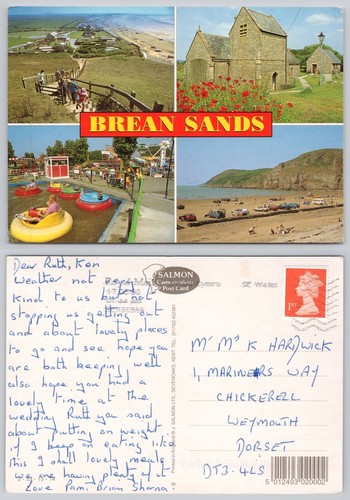 BREAN SANDS
SALMON
Cameracolour
Post Card
SE Wales
1ST
Dear Ruth, Ken
Weather not
Kind to us but not
stopping us getting out
and about lovely places
to go and see hope you
are both keeping well
also hope you had a
lovely time at the
wedding Ruth you said
about putting on weight
if I keep on eating like
this I shall lovely meals
we are having plenty of it
Love Pam. Brian
Mr Mrs K HARDWICK
1, MARINERS WAY
CHICKERELL
WEYMOUTH
DORSET
DT3 4LS
Printed in England © J. SALMON LTD., SEVENOAKS, KENT. TEL:
5 012493 020002